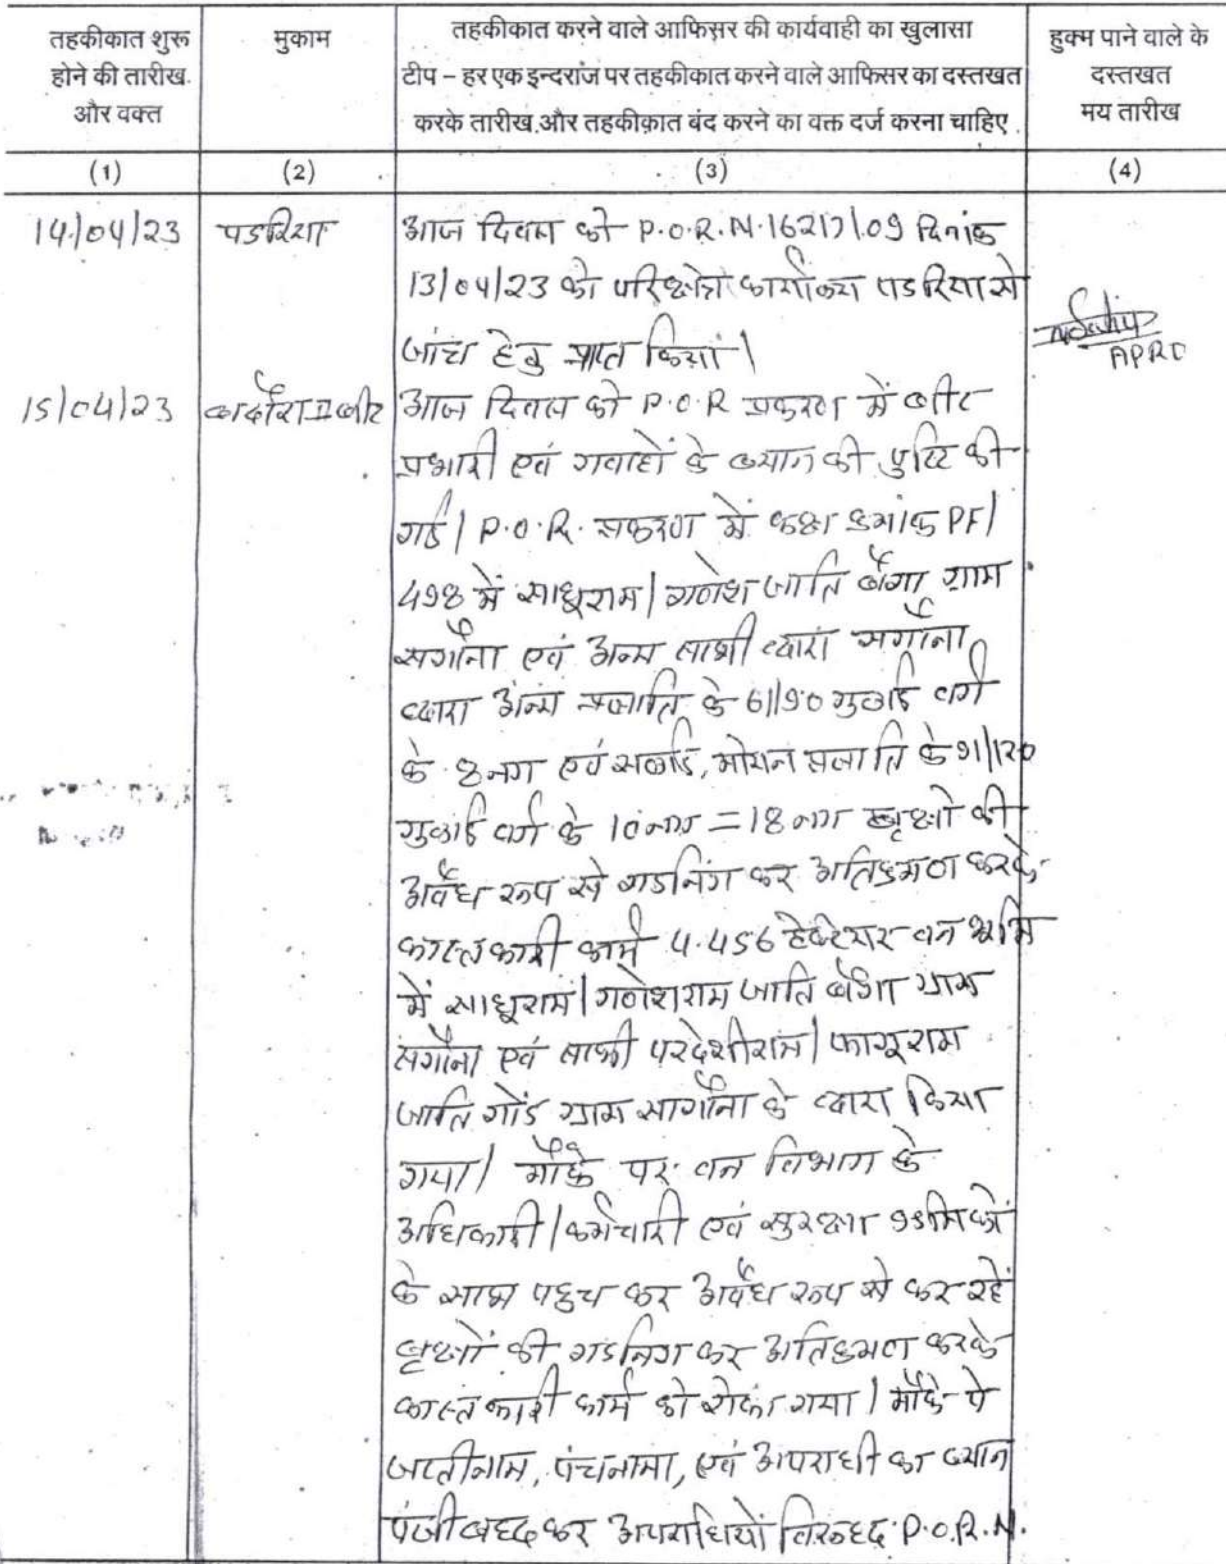 तहकीकात शुरू होने की तारीख और वक्त
मुकाम
तहकीकात करने वाले आफिसर की कार्यवाही का खुलासा
टीप – हर एक इन्दराज पर तहकीकात करने वाले आफिसर का दस्तखत
करके तारीख और तहकीक़ात बंद करने का वक्त दर्ज करना चाहिए
हुक्म पाने वाले के दस्तखत मय तारीख
(1) (2) (3) (4)
14/04/23 पडरिया आज दिवस को P.O.R.N.16217/09 दिनांक
13/04/23 को परिक्षेत्र कार्यालय पडरिया से
जांच हेतु प्राप्त किया।
APRO
15/04/23 II बीट आज दिवस को P.O.R प्रकरण में बीट
प्रभारी एवं गवाहों के ब्यान की पुष्टि की
गई। P.O.R. प्रकरण में कक्ष क्रमांक PF/
498 में साधुराम/गणेश जाति बैगा ग्राम
सगौना एवं अन्य साथी द्वारा सगौना
द्वारा अन्य प्रजाति के 61/90 गुलाई वर्ग
के 8 नग एवं सलई, मोयन प्रजाति के 91/120
गुलाई वर्ग के 10 नग = 18 नग बृक्षो की
अवैध रूप से गडनिंग कर अतिक्रमण करके
कास्तकारी कार्य 4.456 हेक्टेयर वन भूमि
में साधूराम/गणेशराम जाति बैगा ग्राम
सगौना एवं साथी परदेशीराम/फागूराम
जाति गोंड ग्राम सागौना के द्वारा किया
गया/ मौके पर वन विभाग के
अधिकारी/कर्मचारी एवं सुरक्षा श्रमिको
के साथ पहुच कर अवैध रूप से कर रहें
बृक्षों की गडनिग कर अतिक्रमण करके
कास्तकारी कार्य को रोका गया। मौके पे
जप्तीनाम, पंचनामा, एवं अपराधी का ब्यान
पंजीबद्ध कर अपराधियों विरुद्ध P.O.R.N.